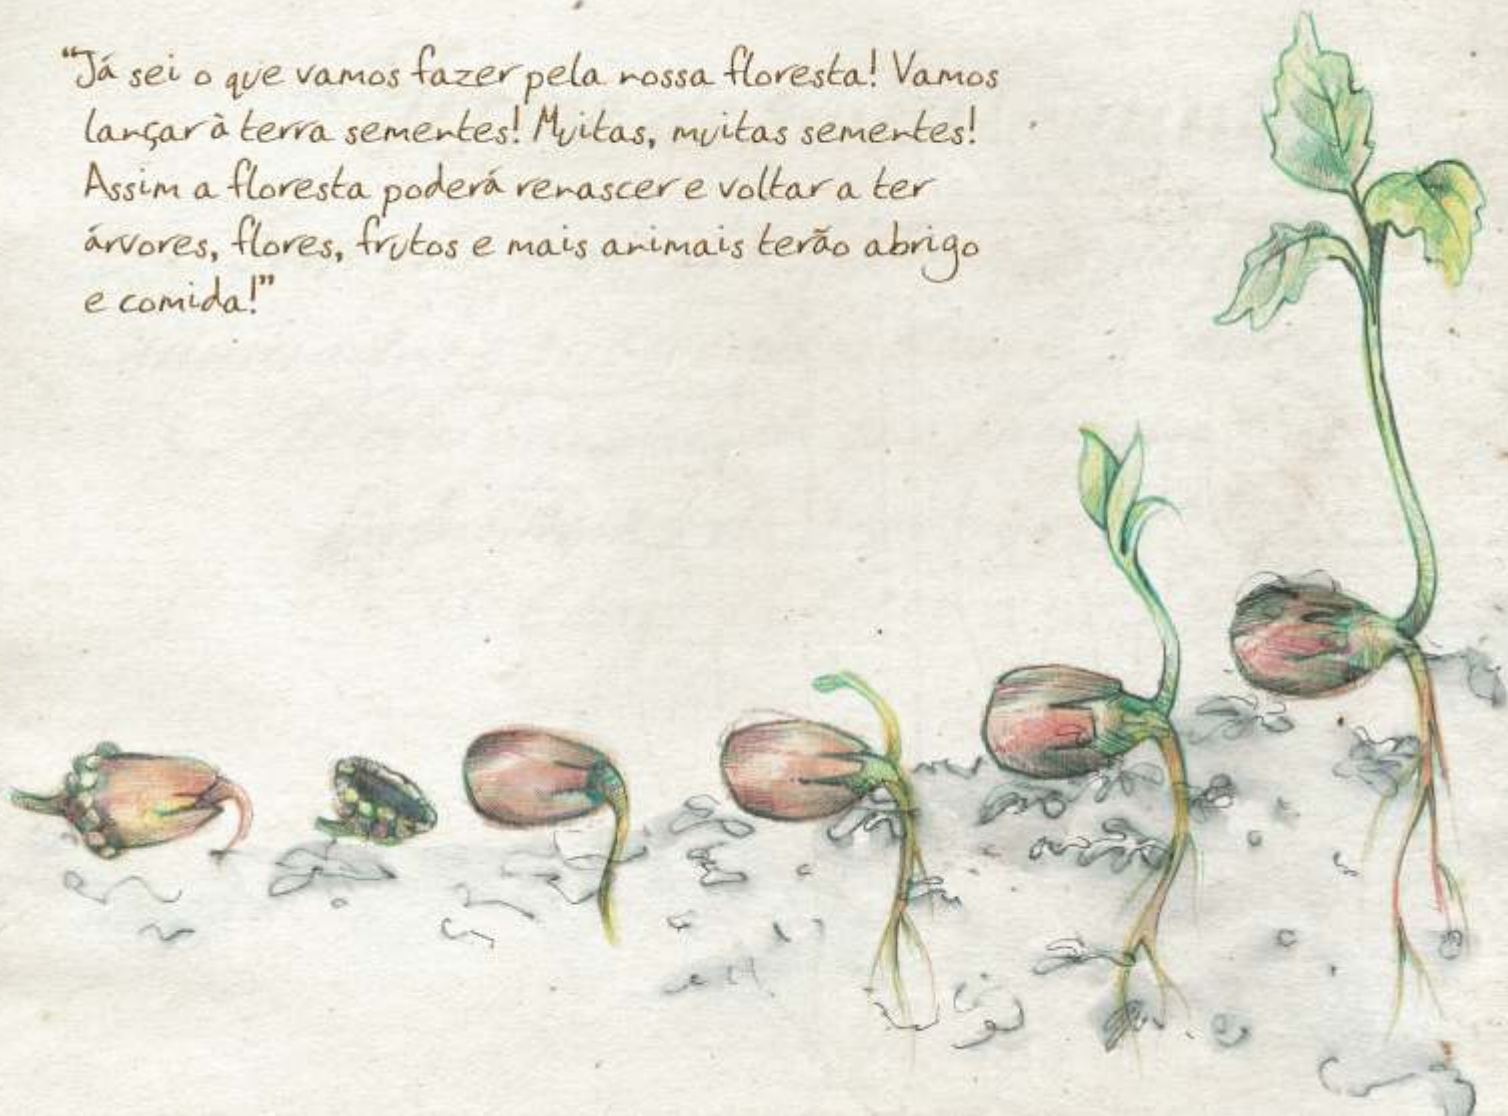 “Já sei o que vamos fazer pela nossa floresta! Vamos
lançar à terra sementes! Muitas, muitas sementes!
Assim a floresta poderá renascer e voltar a ter
árvores, flores, frutos e mais animais terão abrigo
e comida!”